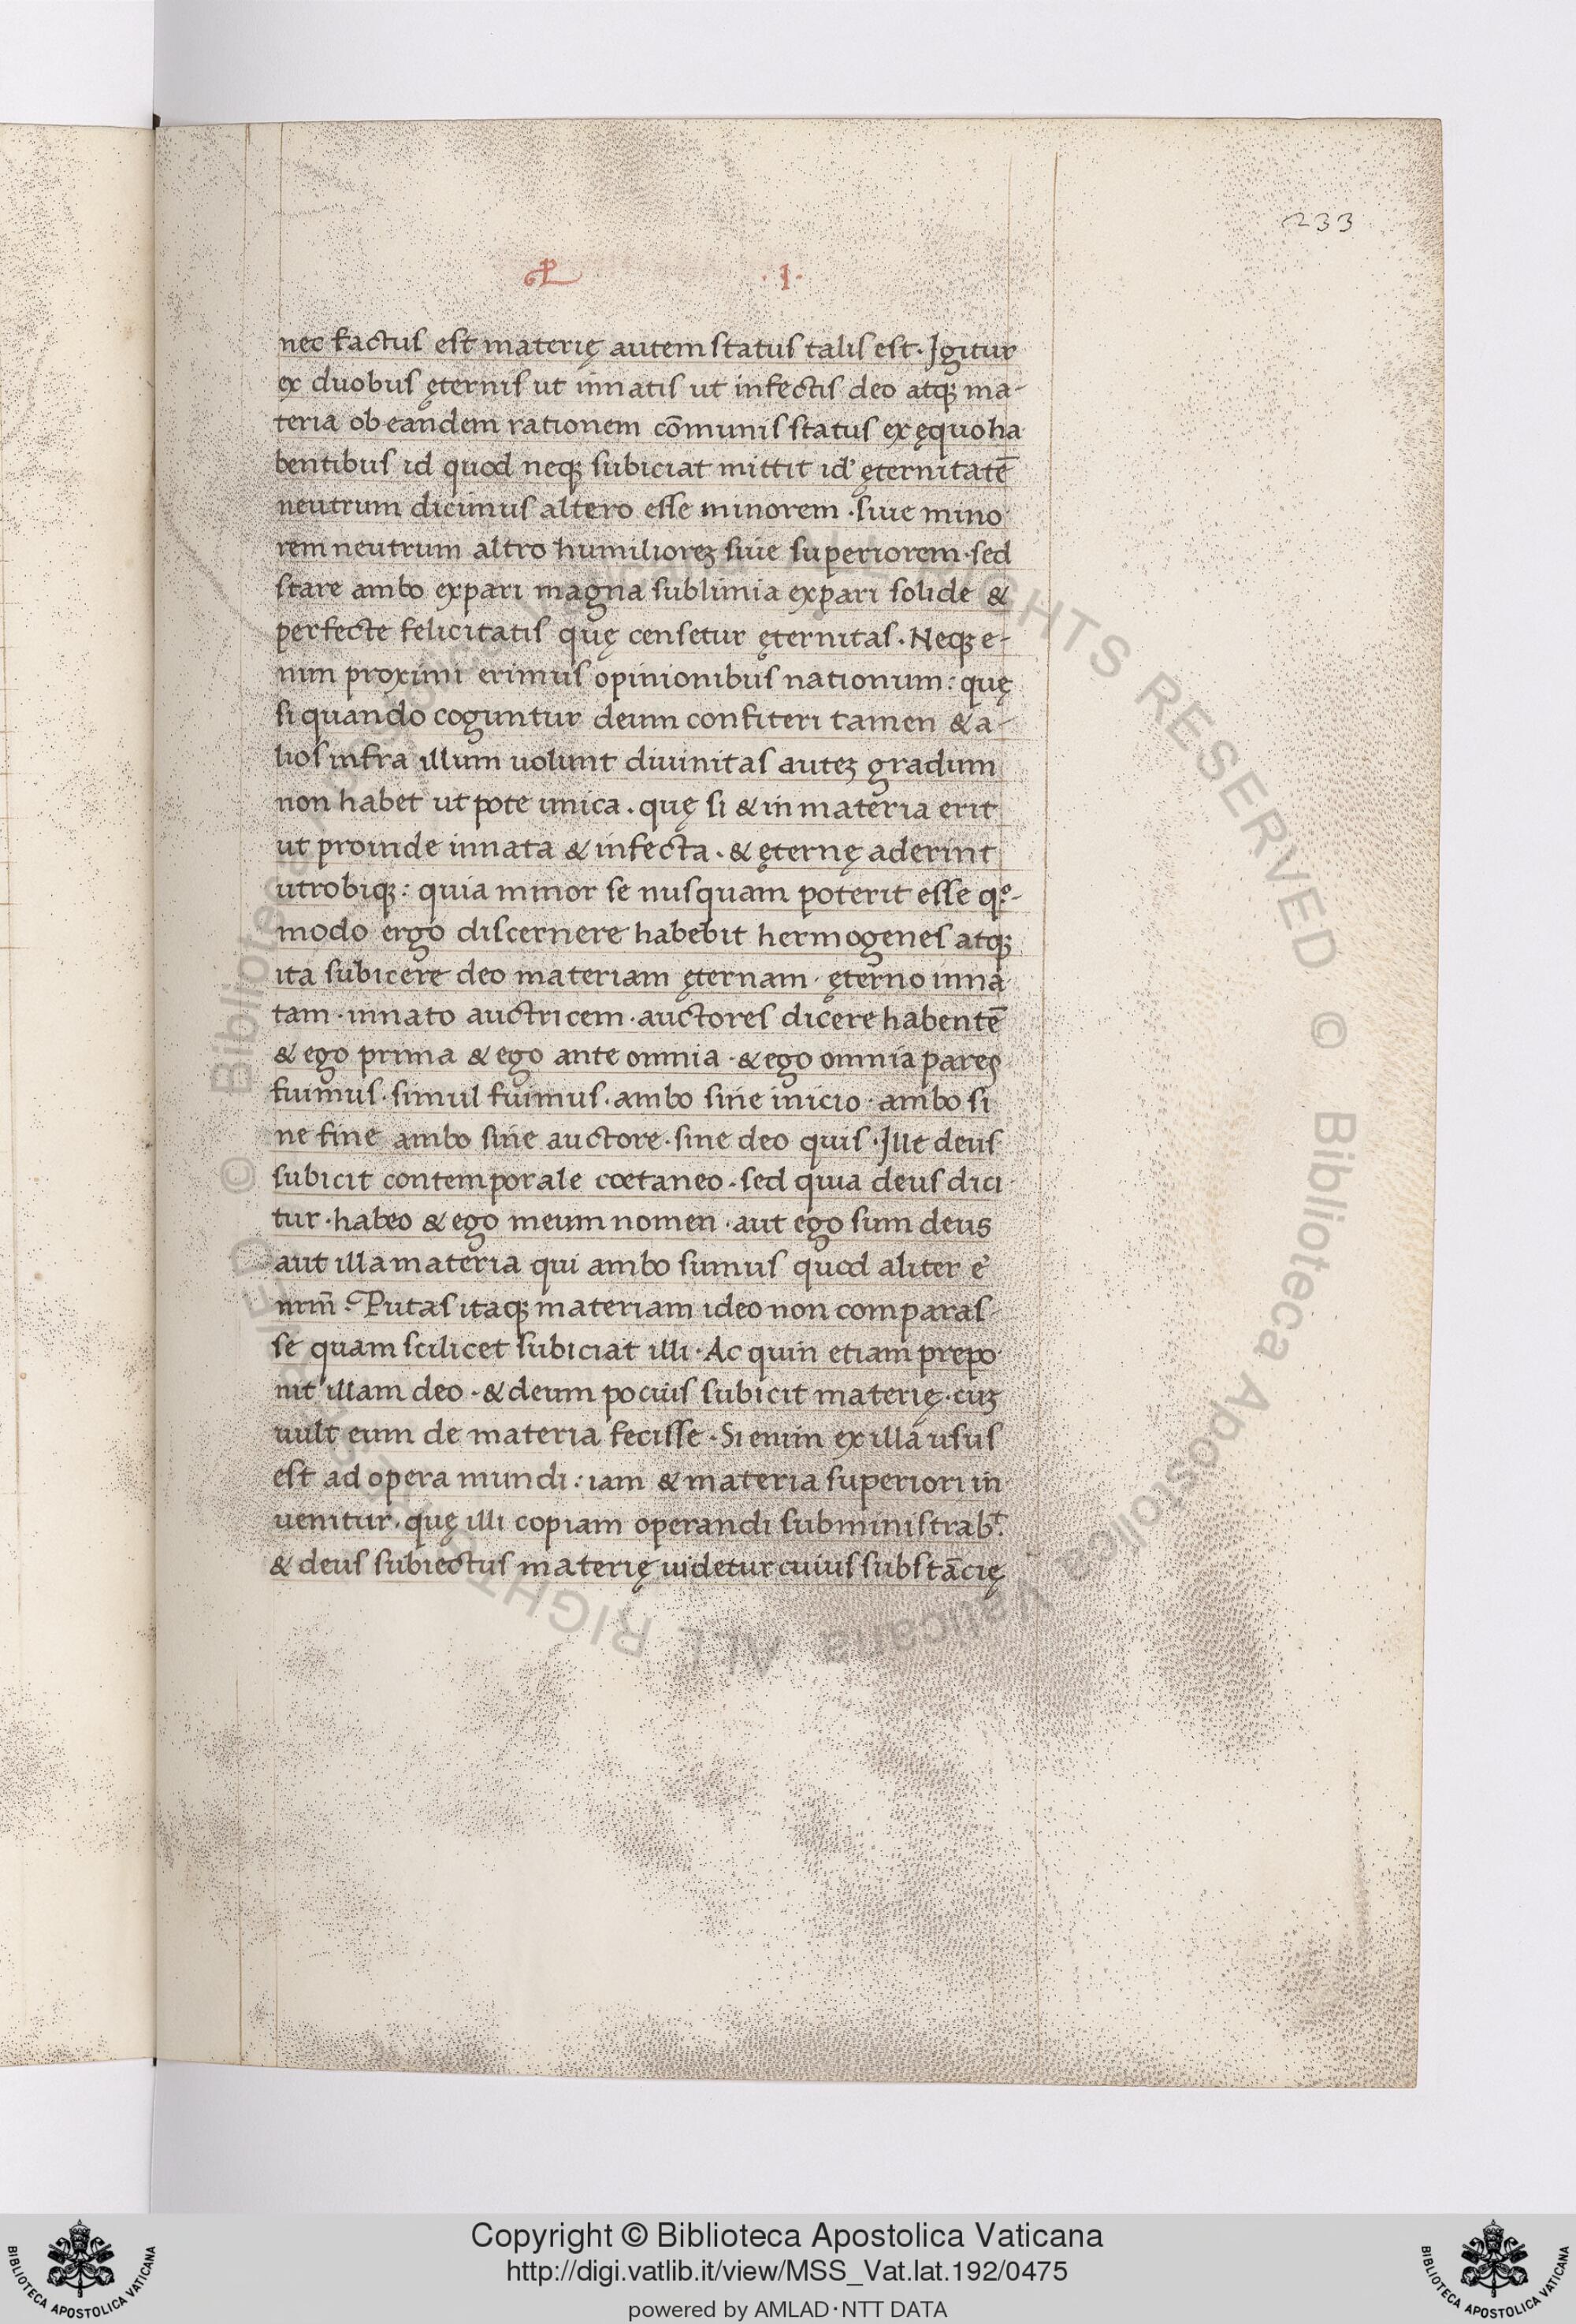 233
· I ·
nec factus est materię autem status talis est. Igitur
ex duobus ęternis ut innatis ut infectis deo atqꝫ ma-
teria ob eandem rationem cōmunis status ex ęquo ha
bentibus id quod neqꝫ subiciat mittit id' ęternitatē
neutrum dicimus altero esse minorem · siue mino
rem neutrum altro humilioreꝫ siue superiorem · sed
stare ambo ex pari magna sublimia ex pari solide &
perfecte felicitatis quę censetur ęternitas. Neqꝫ e-
nim proximi erimus opinionibus nationum: quę
si quando coguntur deum confiteri tamen & a-
lios infra illum uolunt diuinitas auteꝫ gradum
non habet ut pote unica. quę si & in materia erit
ut proinde innata & infecta. & ęternę aderint
utrobiqꝫ: quia minor se nusquam poterit esse qͦ-
modo ergo discernere habebit hermogenes atqꝫ
ita subicere deo materiam ęternam · ęterno inna
tam · innato auctricem · auctores dicere habentē
& ego prima & ego ante omnia · & ego omnia pares
fuimus · simul fuimus · ambo sine inicio · ambo si
ne fine ambo sine auctore · sine deo quis · Ille deus
subicit contemporale coetaneo. sed quia deus dici
tur · habeo & ego meum nomen · aut ego sum deus
aut illa materia qui ambo sumus quod aliter e'
nrm̄. Putas itaqꝫ materiam ideo non comparas-
se quam scilicet subiciat illi · Ac quin etiam prepo
nit illam deo · & deum pocius subicit materię · cuꝫ
uult eum de materia fecisse · Si enim ex illa usus
est ad opera mundi: iam & materia superiori in
uenitur. quę illi copiam operandi subministrabᵗ.
& deus subiectus materię uidetur cuius substācię
© Biblioteca Apostolica Vaticana ALL RIGHTS RESERVED © Biblioteca Apostolica Vaticana ALL RIGHTS RESERVED
Copyright © Biblioteca Apostolica Vaticana
http://digi.vatlib.it/view/MSS_Vat.lat.192/0475
powered by AMLAD·NTT DATA
BIBLIOTECA APOSTOLICA VATICANA
BIBLIOTECA APOSTOLICA VATICANA